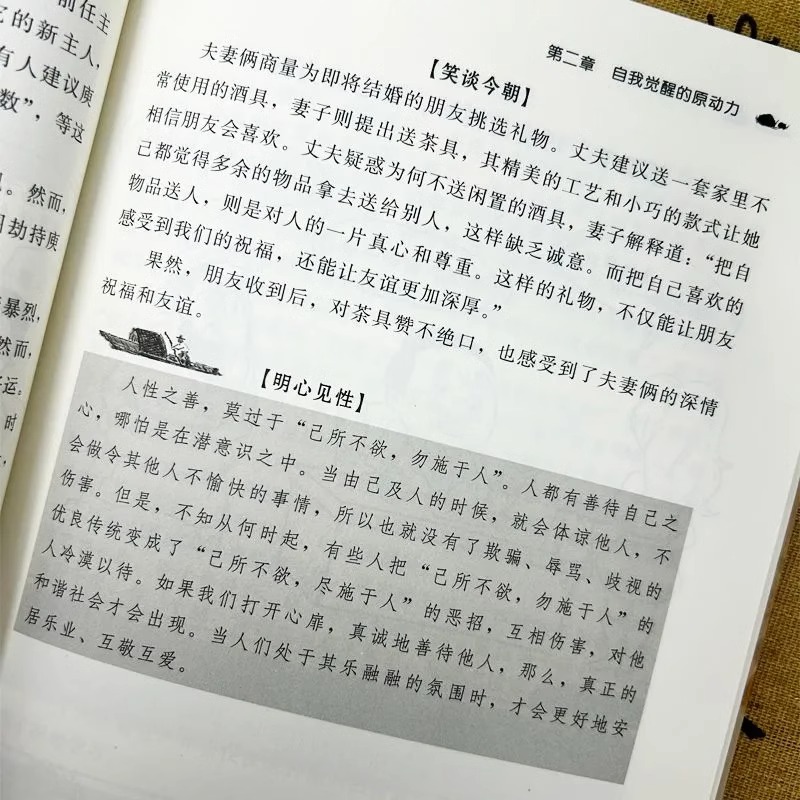 前任主
的新主人,
有人建议庾
数”,等这
。然而,
劫持庾
暴烈,
然而,
运:
时
第二章 自我觉醒的原动力
【笑谈今朝】
夫妻俩商量为即将结婚的朋友挑选礼物。丈夫建议送一套家里不
常使用的酒具,妻子则提出送茶具,其精美的工艺和小巧的款式让她
相信朋友会喜欢。丈夫疑惑为何不送闲置的酒具,妻子解释道:“把自
己都觉得多余的物品拿去送给别人,这样缺乏诚意。而把自己喜欢的
物品送人,则是对人的一片真心和尊重。这样的礼物,不仅能让朋友
感受到我们的祝福,还能让友谊更加深厚。”
果然,朋友收到后,对茶具赞不绝口,也感受到了夫妻俩的深情
祝福和友谊。
【明心见性】
人性之善,莫过于“己所不欲,勿施于人”。人都有善待自己之
心,哪怕是在潜意识之中。当由己及人的时候,就会体谅他人,不
会做令其他人不愉快的事情,所以也就没有了欺骗、辱骂、歧视的
伤害。但是,不知从何时起,有些人把“己所不欲,勿施于人”的
优良传统变成了“己所不欲,尽施于人”的恶招,互相伤害,对他
人冷漠以待。如果我们打开心扉,真诚地善待他人,那么,真正的
和谐社会才会出现。当人们处于其乐融融的氛围时,才会更好地安
居乐业、互敬互爱。